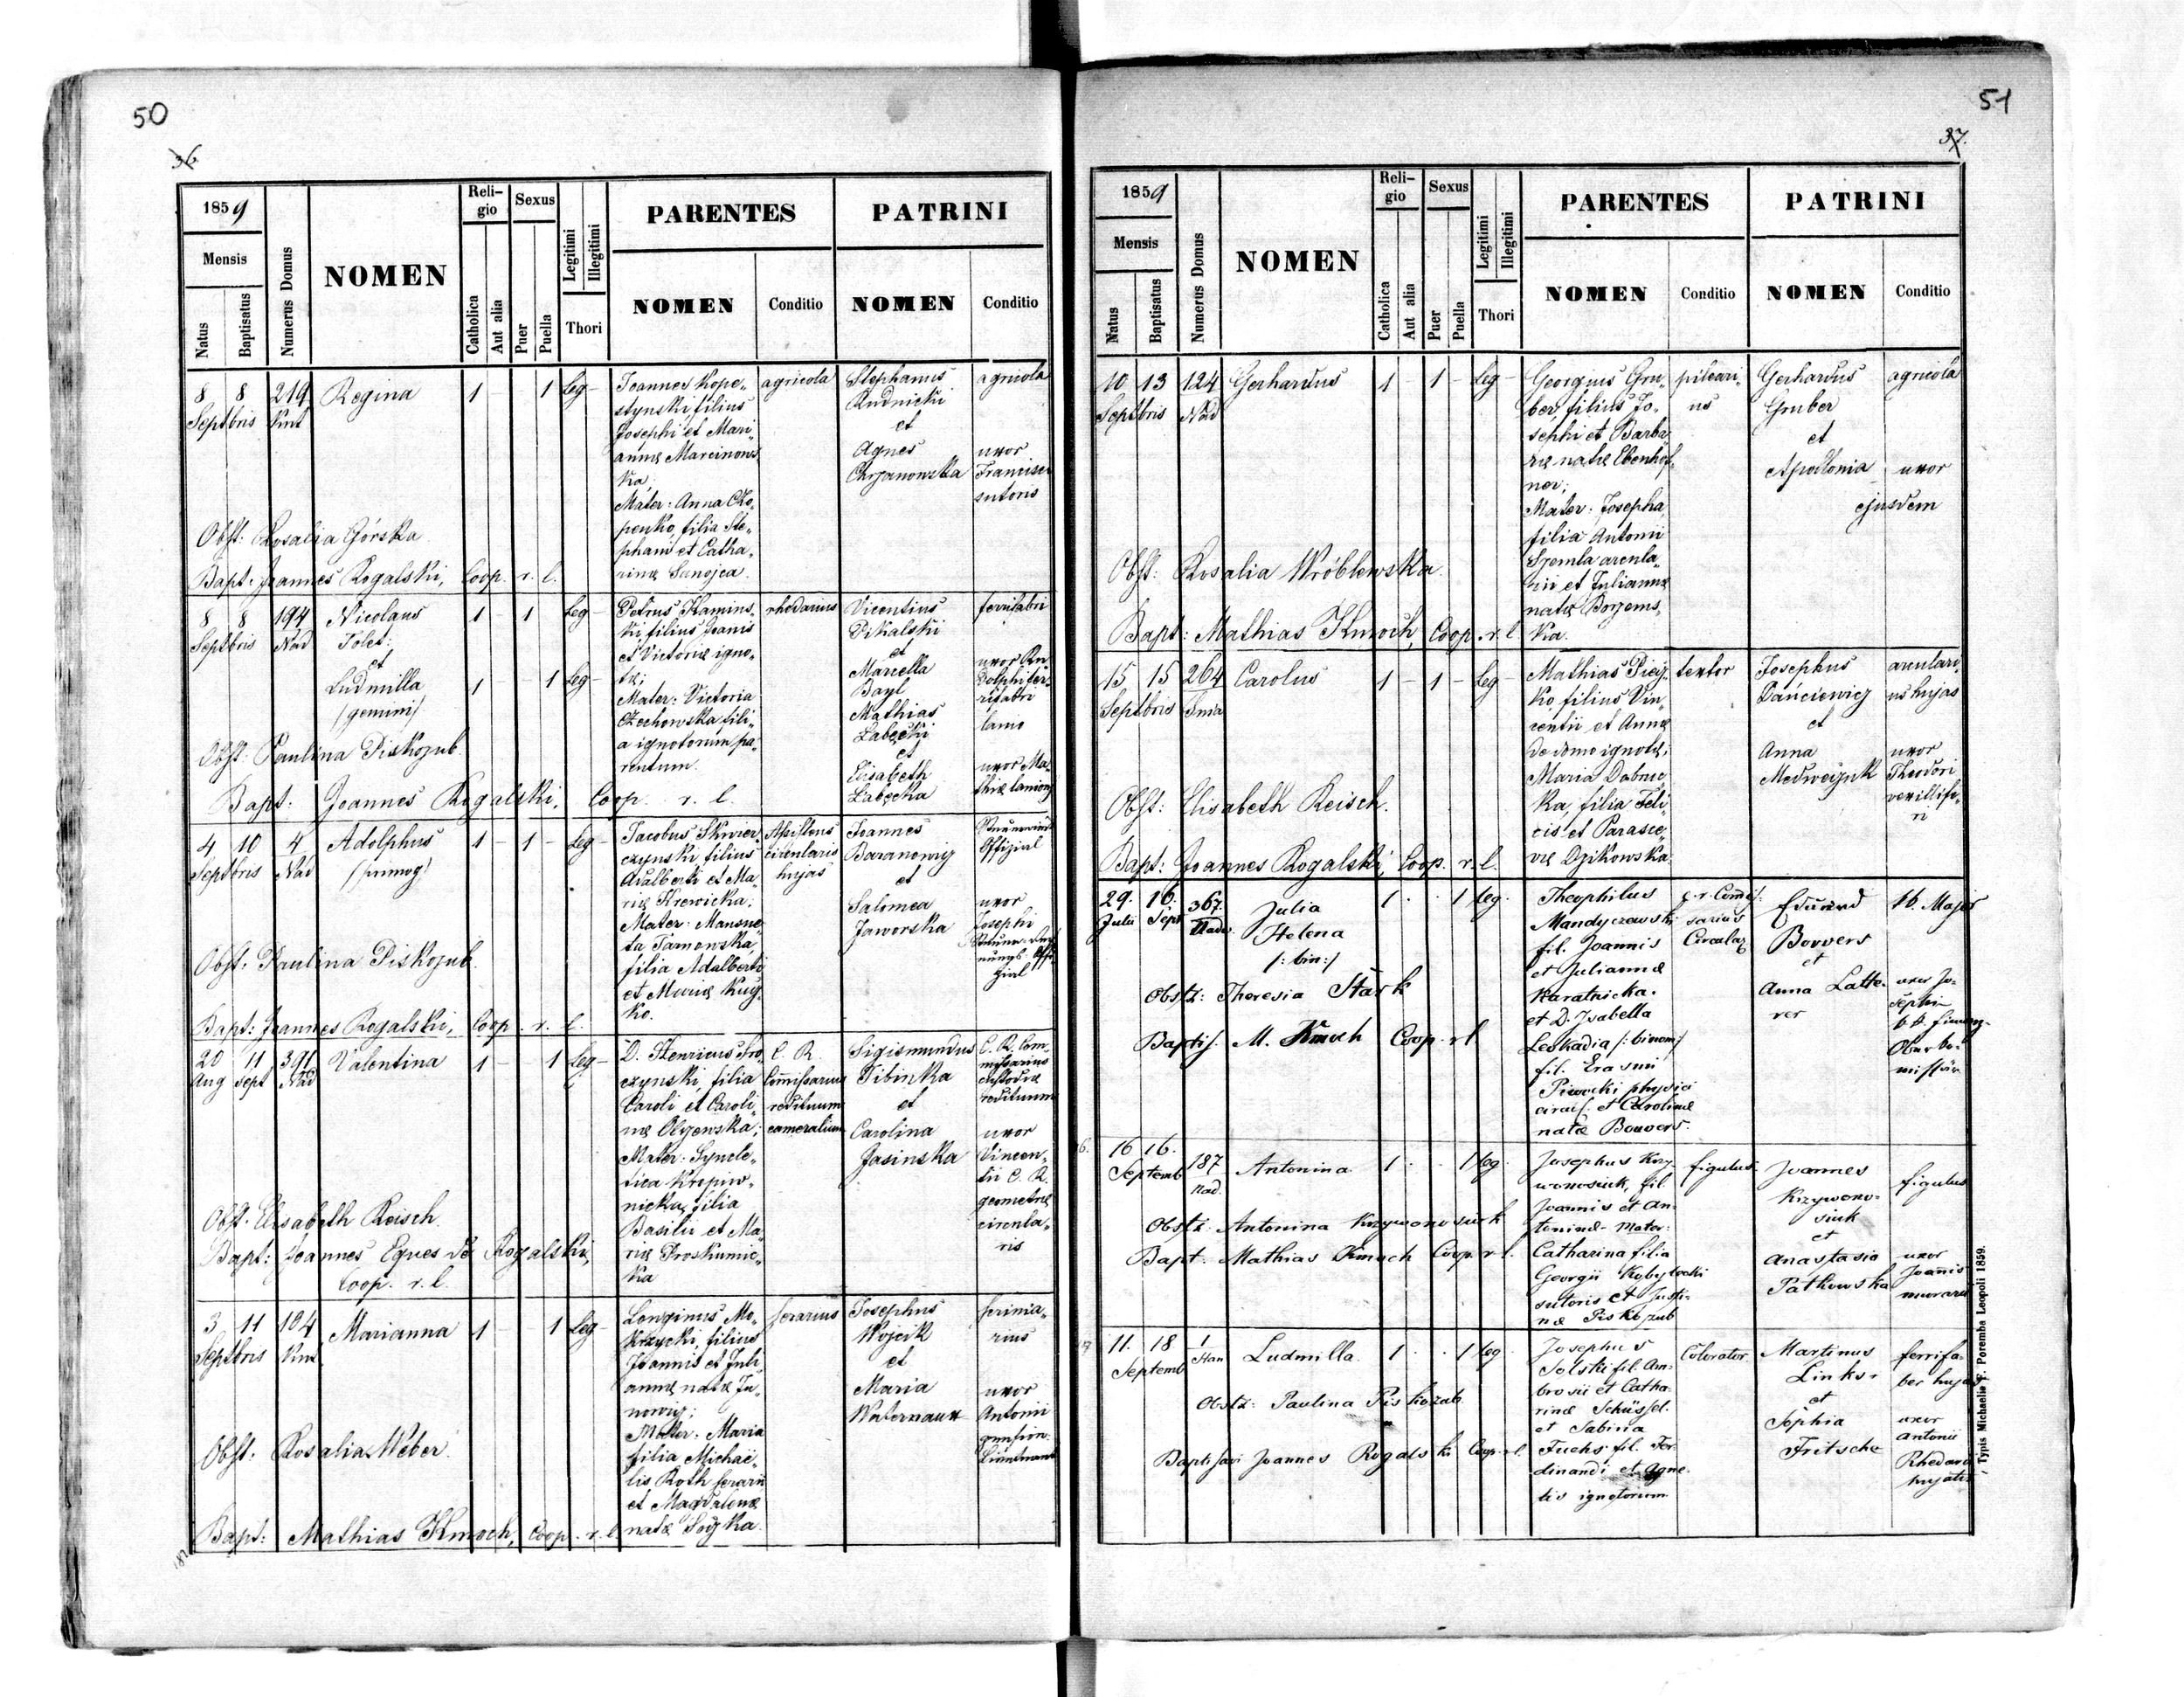 50
36
1859
Mensis
Natus
Baptisatus
Numerus Domus
NOMEN
Reli-
gio
Catholica
Aut alia
Sexus
Puer
Puella
Legitimi
Illegitimi
Thori
PARENTES
NOMEN
Conditio
PATRINI
NOMEN
Conditio
8 8 219 Regina 1 - - 1 Leg -
Septbris
Joannes Kope-
stynski, filius
Josephi et Mari-
annæ Marcinows-
ka;
Mater: Anna Czo-
penko, filia Ste-
phani et Catha-
rinæ Sanojca.
agricola
Stephanus
Rudnicki
et
Agnes
Chrzanowska
agricola
uxor
Francisci
sutoris
Obst: Rosalia Górska
Bapt: Joannes Rogalski, Coop. r. l.
8 8 194 Nicolaus 1 - 1 Leg -
Septbris Nád Tolet:
et
Ludmilla 1 1 Leg -
/gemini/
Petrus Kamins-
ki, filius Joanis
et Victoriæ igno-
tæ;
Mater: Victoria
Czechowska, fili-
a ignotorum pa-
rentum.
rhedarius
Vicentius
Pikalski
et
Marcella
Bayl
Mathias
Łabęcki
et
Elisabeth
Łabęcka
ferrifabri
uxor Ru-
dolphi fer-
rifabri
lanio
uxor Ma-
thiæ lanionis
Obst: Paulina Piskozub.
Bapt: Joannes Rogalski, Coop. r. l.
4 10 4 Adolphus 1 - 1 - Leg -
Septbris Nád /primog/
Jacobus Skwier-
czynski, filius
Adalberti et Ma-
riæ Krewicka;
Mater: Mansue-
ta Tarnowska,
filia Adalberti
et Mariæ
ko.
Assistens
circularis
hujas
Joannes
Baranowicz
et
Salomea
Jaworska
Offizial
uxor
Josephi
Obst: Paulina Piskozub.
Bapt: Joannes Rogalski, Coop. r. l.
20 11 391 Valentina 1 - - 1 Leg -
Aug Sept Nád
D. Henricus
czynski, filia
Caroli et Caroli-
næ Olszewska;
Mater: Syncle-
tica Kropiw-
nicka, filia
Basilii et Ma-
riæ Proskurnic-
ka
C. R.
Commissarius
redituum
cameralium
Sigismundus
Tibinka
et
Carolina
Jasinska
C. R. Com-
missarius
custodiæ
redituum
uxor
Vincen-
tii C. R.
geometræ
circula-
ris
Obst: Elisabeth Reisch.
Bapt: Joannes Eques de Rogalski,
Coop. r. l.
3 11 104 Marianna 1 - - 1 Leg -
Septbris
Longinus Mo-
krzycki, filius
Joannis et Juli-
annæ natæ Ja-
nowicz;
Mater: Maria
filia Michaë-
lis Roth
et Magdalenæ
natæ
Josephus
Wojcik
et
Maria
Waternaux
uxor
Antonii
pension.
Lieutnant
Obst: Rosalia Weber.
Bapt: Mathias Kmoch, Coop. r. l.
51
37.
1859
Mensis
Natus
Baptisatus
Numerus Domus
NOMEN
Reli-
gio
Catholica
Aut alia
Sexus
Puer
Puella
Legitimi
Illegitimi
Thori
PARENTES
NOMEN
Conditio
PATRINI
NOMEN
Conditio
10 13 124 Gerhardus 1 - 1 - Leg -
Septbris Nád
Georgius Gru-
ber, filius Jo-
sephi et Barba-
ræ natæ Ebenhof-
ner;
Mater: Josepha,
filia Antonii
Szemla arcula-
rii et Julianna
natæ Borzems-
ka.
pileari-
us
Gerhardus
Gruber
et
Apollonia
agricola
uxor
ejusdem
Obst: Rosalia Wróblewska
Bapt: Mathias Kmoch, Coop. r. l.
15 15 264 Carolus 1 - 1 - Leg -
Septbris
Mathias
ko, filius Vin-
centii et Annæ
de domo ignotæ;
Maria Dobruc-
ka, filia Feli-
cis et Parasce-
viæ Dzikowska.
textor
Josephus
Panciewicz
et
Anna
Medweczuk
arculari-
us hujas
uxor
Theodori
vexillife-
ri
Obst: Elisabeth Reisch.
Bapt: Joannes Rogalski, Coop. r. l.
29. 16. 367. Julia 1. . . 1 leg.
Julii Sept Nadw. Helena
/: bin:/
Theophilus
Mandyczewski
fil. Joannis
et Juliannæ
Karatnicka.
et D. Isabella
Leokadia /: binom:/
fil. Erasmi
Piwocki physici
circul. et Carolinæ
natæ Bouvers.
c. r. Comis-
sarius
Circular.
Eduard
Bouvers
et
Anna Latte-
rer
k. Major
uxor Jo-
sephi
k. k. Finanz-
Oberko-
missär
Obstz: Theresia Stark
Baptis. M. Kmoch Coop. r l
16 16. 187 Antonina. 1. . . 1 leg.
Septemb Nad.
Josephus Krzy-
wonosiuk, fil.
Joannis et An-
toninæ - Mater:
Catharina filia
Georgii Kobyłecki
sutoris et Justi-
næ Piskozub
figulus
Joannes
Krzywono-
siuk
et
Anastasia
Patkowska
figulus
uxor
Joannis
murarii
Obstz: Antonina Krzywonosiuk
Bapt. Mathias Kmoch Coop. r. l.
11. 18 1 Ludmilla. 1. . . 1 leg.
Septemb Stan
Josephus
Solski fil. Am-
brosii et Catha-
rinæ Schüssel.
et Sabina
Fuchs fil. Fer-
dinandi et Agne-
tis ignotorum
Colorator
Martinus
Links.
et
Sophia
Fritsche
ferrifa-
ber hujas
uxor
Antonii
Rhedarii
hujatis
Obstz: Paulina Piskozub
Baptisavi Joannes Rogalski Coop. r l
Typis Michaelis F. Poremba Leopoli 1859.